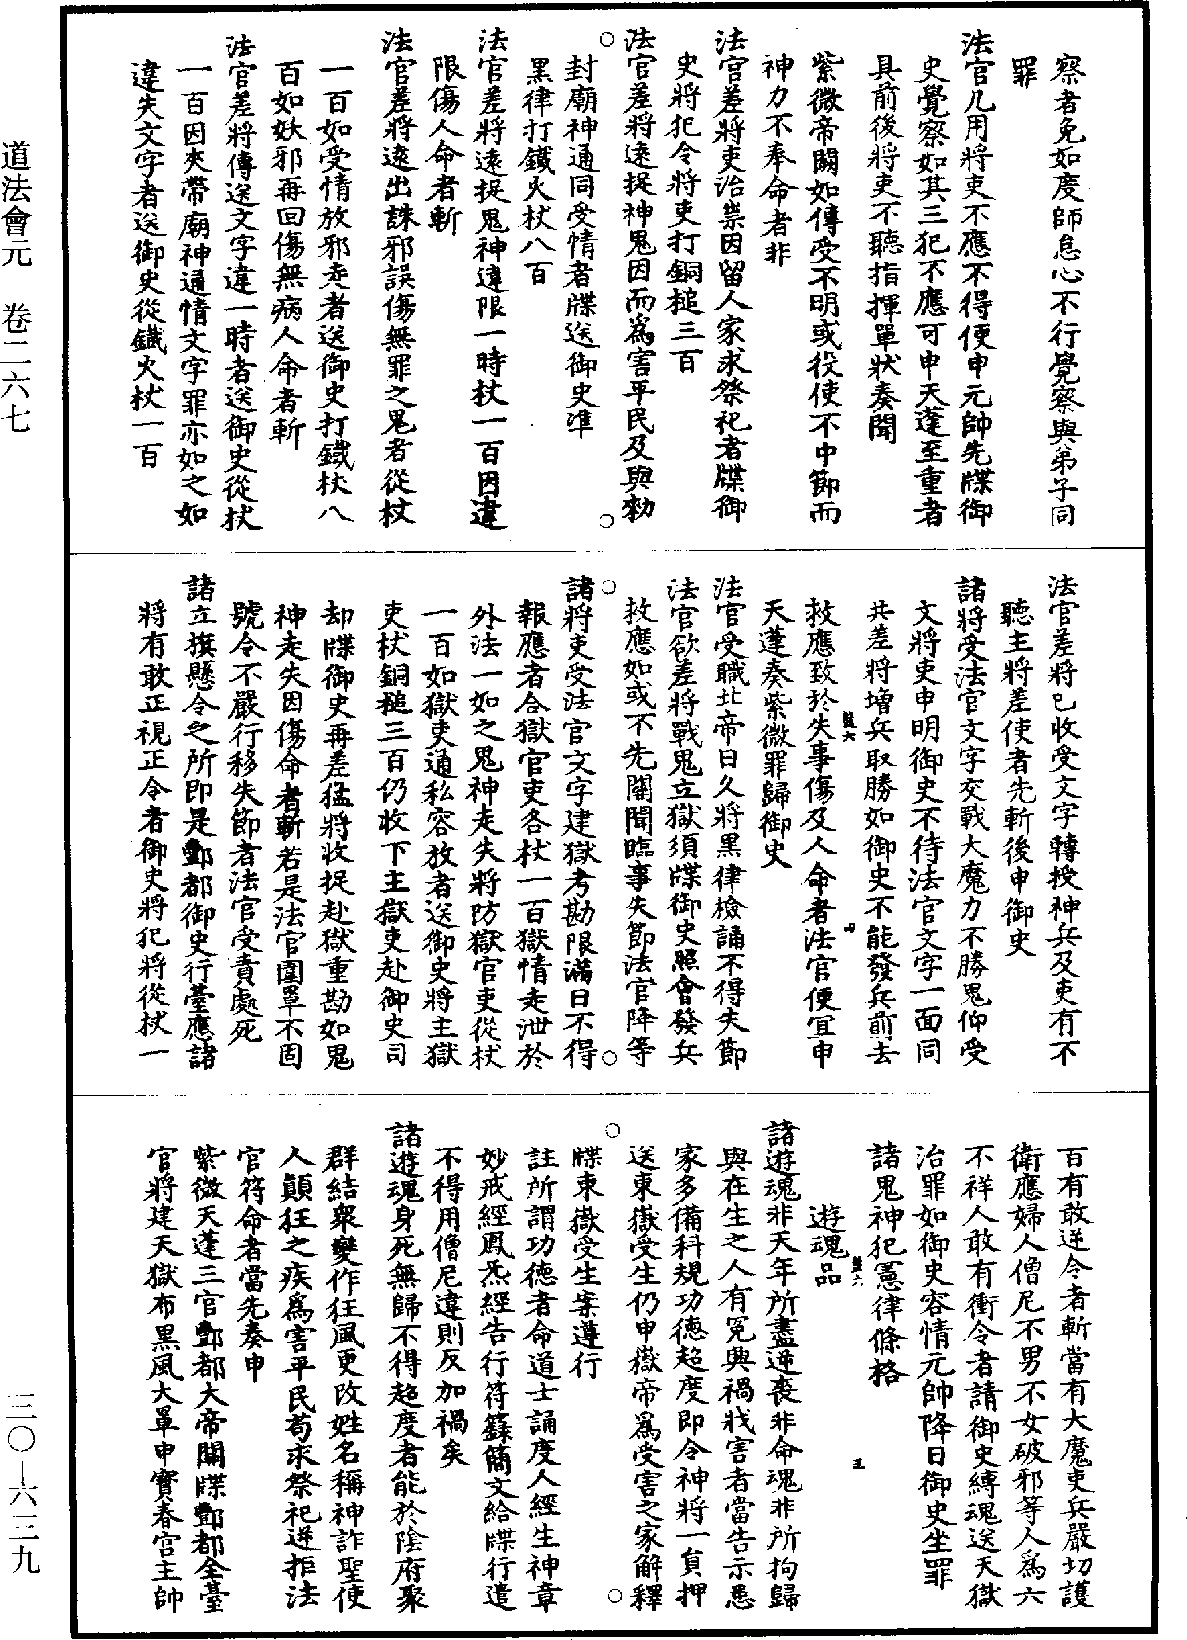 道法會元　卷二六七
察者免如度師怠心不行覺察與弟子同
罪
法官凡用將吏不應不得便申元帥先牒御
史覺察如其三犯不應可申天蓬至重者
具前後將吏不聽指揮單狀奏聞
紫微帝闕如傳受不明或役使不中節而
神力不奉命者非
法官差將吏治祟因留人家求祭祀者牒御
史將犯令將吏打銅槌三百
法官差將遠捉神鬼因而為害平民及與勑
封廟神通同受情者牒送御史準
黑律打鐵火杖八百
法官差將遠捉鬼神違限一時杖一百因違
限傷人命者斬
法官差將遠出誅邪誤傷無罪之鬼者從杖
一百如受情放邪走者送御史打鐵杖八
百如妖邪再回傷無病人命者斬
法官差將傳送文字違一時者送御史從杖
一百因夾帶廟神通情文字罪亦如之如
違失文字者送御史從鐵火杖一百
法官差將已收受文字轉授神兵及吏有不
聽主將差使者先斬後申御史
諸將受法官文字交戰大魔力不勝鬼仰受
文將吏申明御史不待法官文字一面同
共差將增兵取勝如御史不能發兵前去
救應致於失事傷及人命者法官便宜申
天蓬奏紫微罪歸御史
法官受職北帝日久將黑律檢誦不得失節
法官欲差將戰鬼立獄須牒御史照會發兵
救應如或不先關聞臨事失節法官降等
諸將吏受法官文字建獄考勘限滿日不得
報應者合獄官吏各杖一百獄情走泄於
外法一如之鬼神走失將防獄官吏從杖
一百如獄吏通私容放者送御史將主獄
吏杖銅槌三百仍收下主獄吏赴御史司
却牒御史再差猛將收捉赴獄重勘如鬼
神走失因傷命者斬若是法官圍罩不固
號令不嚴行移失節者法官受責處死
諸立旗懸令之所即是酆都御史行臺應諸
將有敢正視正令者御史將犯將從杖一
百有敢逆令者斬當有大魔吏兵嚴切護
衛應婦人僧尼不男不女破邪等人為六
不祥人敢有衝令者請御史縛魂送天獄
治罪如御史容情元帥降日御史坐罪
諸鬼神犯憲律條格
遊魂品
諸遊魂非天年所盡逆喪非命魂非所拘歸
與在生之人有冤與禍戕害者當告示悉
家多備科規功德超度即令神將一員押
送東嶽受生仍申嶽帝為受害之家解釋
牒東嶽受生案遵行
註所謂功德者命道士誦度人經生神章
妙戒經鳳炁經告行符籙簡文給牒行遣
不得用僧尼違則反加禍矣
諸遊魂身死無歸不得超度者能於陰府聚
群結衆變作狂風更改姓名稱神詐聖使
人顛狂之疾為害平民苟求祭祀逆拒法
官符命者當先奏申
紫微天蓬三官酆都大帝關牒酆都全臺
官將建天獄布黑風大罩申寶春宮主帥
三〇—六三九